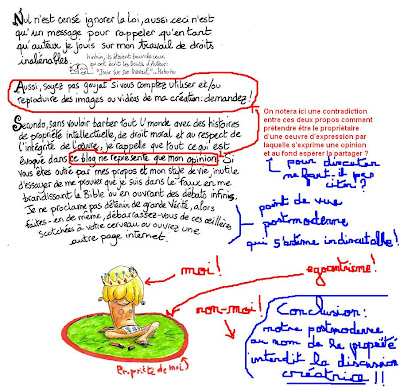 Nul n'est censé ignorer la loi, aussi ceci n'est
qu'un message pour rappeler qu'en tant
qu'auteur je jouis sur mon travail de droits
inaliénables.
"Jouir sur son travail"... Hohoho
Aussi, soyez pas goujat si vous comptez utiliser et/ou
reproduire des images ou vidéos de ma création: demandez!
Secundo, sans vouloir barber tout l'monde avec des histoires
de propriété intellectuelle, de droit moral et au respect de
l'intégrité de l'œuvre, je rappelle que tout ce qui est
évoqué dans ce blog ne représente que mon opinion. Si
vous êtes outré par mes propos et mon style de vie, inutile
d'essayer de me prouver que je suis dans le faux en me
brandissant la Bible ou en ouvrant des débats infinis.
Je ne proclame pas détenir de grande Vérité, alors
faites-en de même, débarrassez-vous de ces œillères
scotchées à votre cerveau ou ouvrez une
autre page internet.
On notera ici une contradiction
entre ces deux propos comment
prétendre être le propriétaire
d'une oeuvre d'expression par
laquelle s'exprime une opinion
et au fond espérer la partager ?
pour discuter
ne faut-il pas
citer?
point de vue
postmoderne
qui s'estime indiscutable!
moi!
egocentrisme!
non-moi!
Propriété de moi
Conclusion:
notre postmoderne
au nom de la propriété
interdit la discussion
créatrice!!